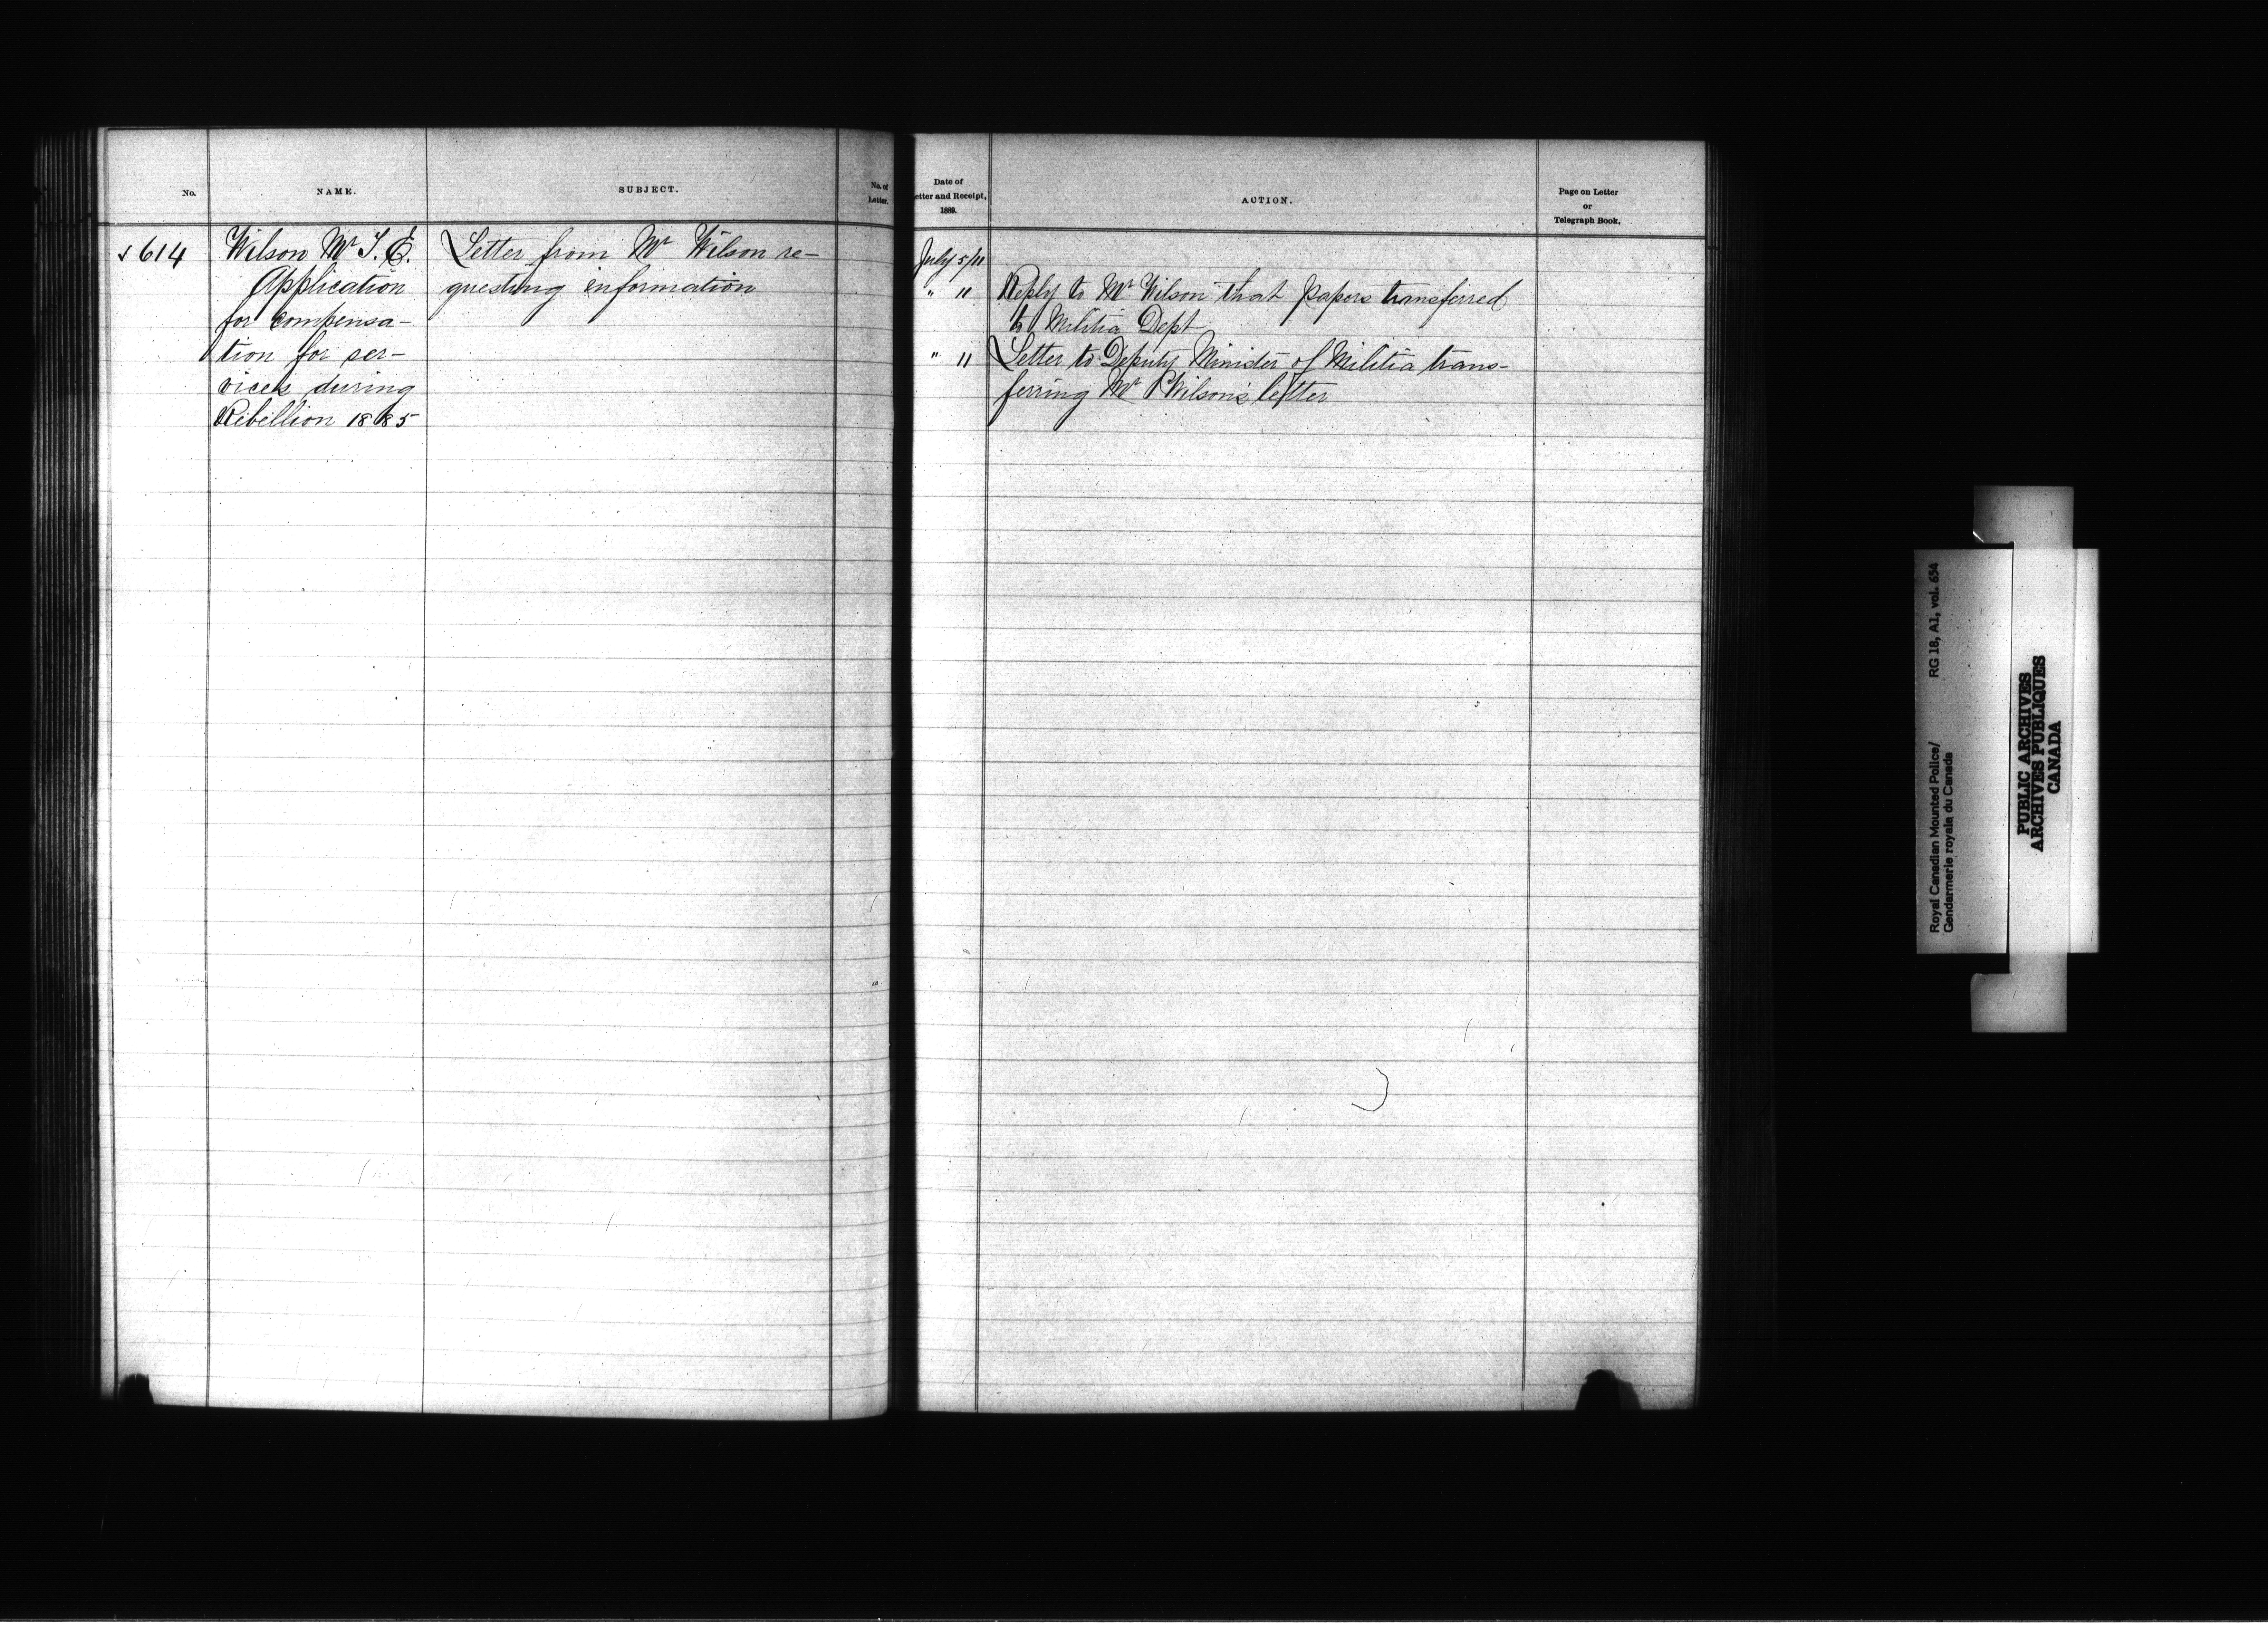 No.
NAME.
SUBJECT.
No. of
Letter.
Date of
etter and Receipt,
1889.
ACTION.
Page on Letter
or
Telegraph Book.
614
Wilson Mr T. E.
Application
for compensa-
tion for ser-
vices during
Rebellion 1885
Letter from Mr Wilson re-
questing information
July 5/11
" 11
Reply to Mr Wilson that papers transferred
to Militia Dept
" 11
Letter to Deputy Minister of Militia trans-
ferring Mr Wilson's letter
Royal Canadian Mounted Police/
Gendarmerie royale du Canada
RG 18, A1, vol. 654
PUBLIC ARCHIVES
ARCHIVES PUBLIQUES
CANADA